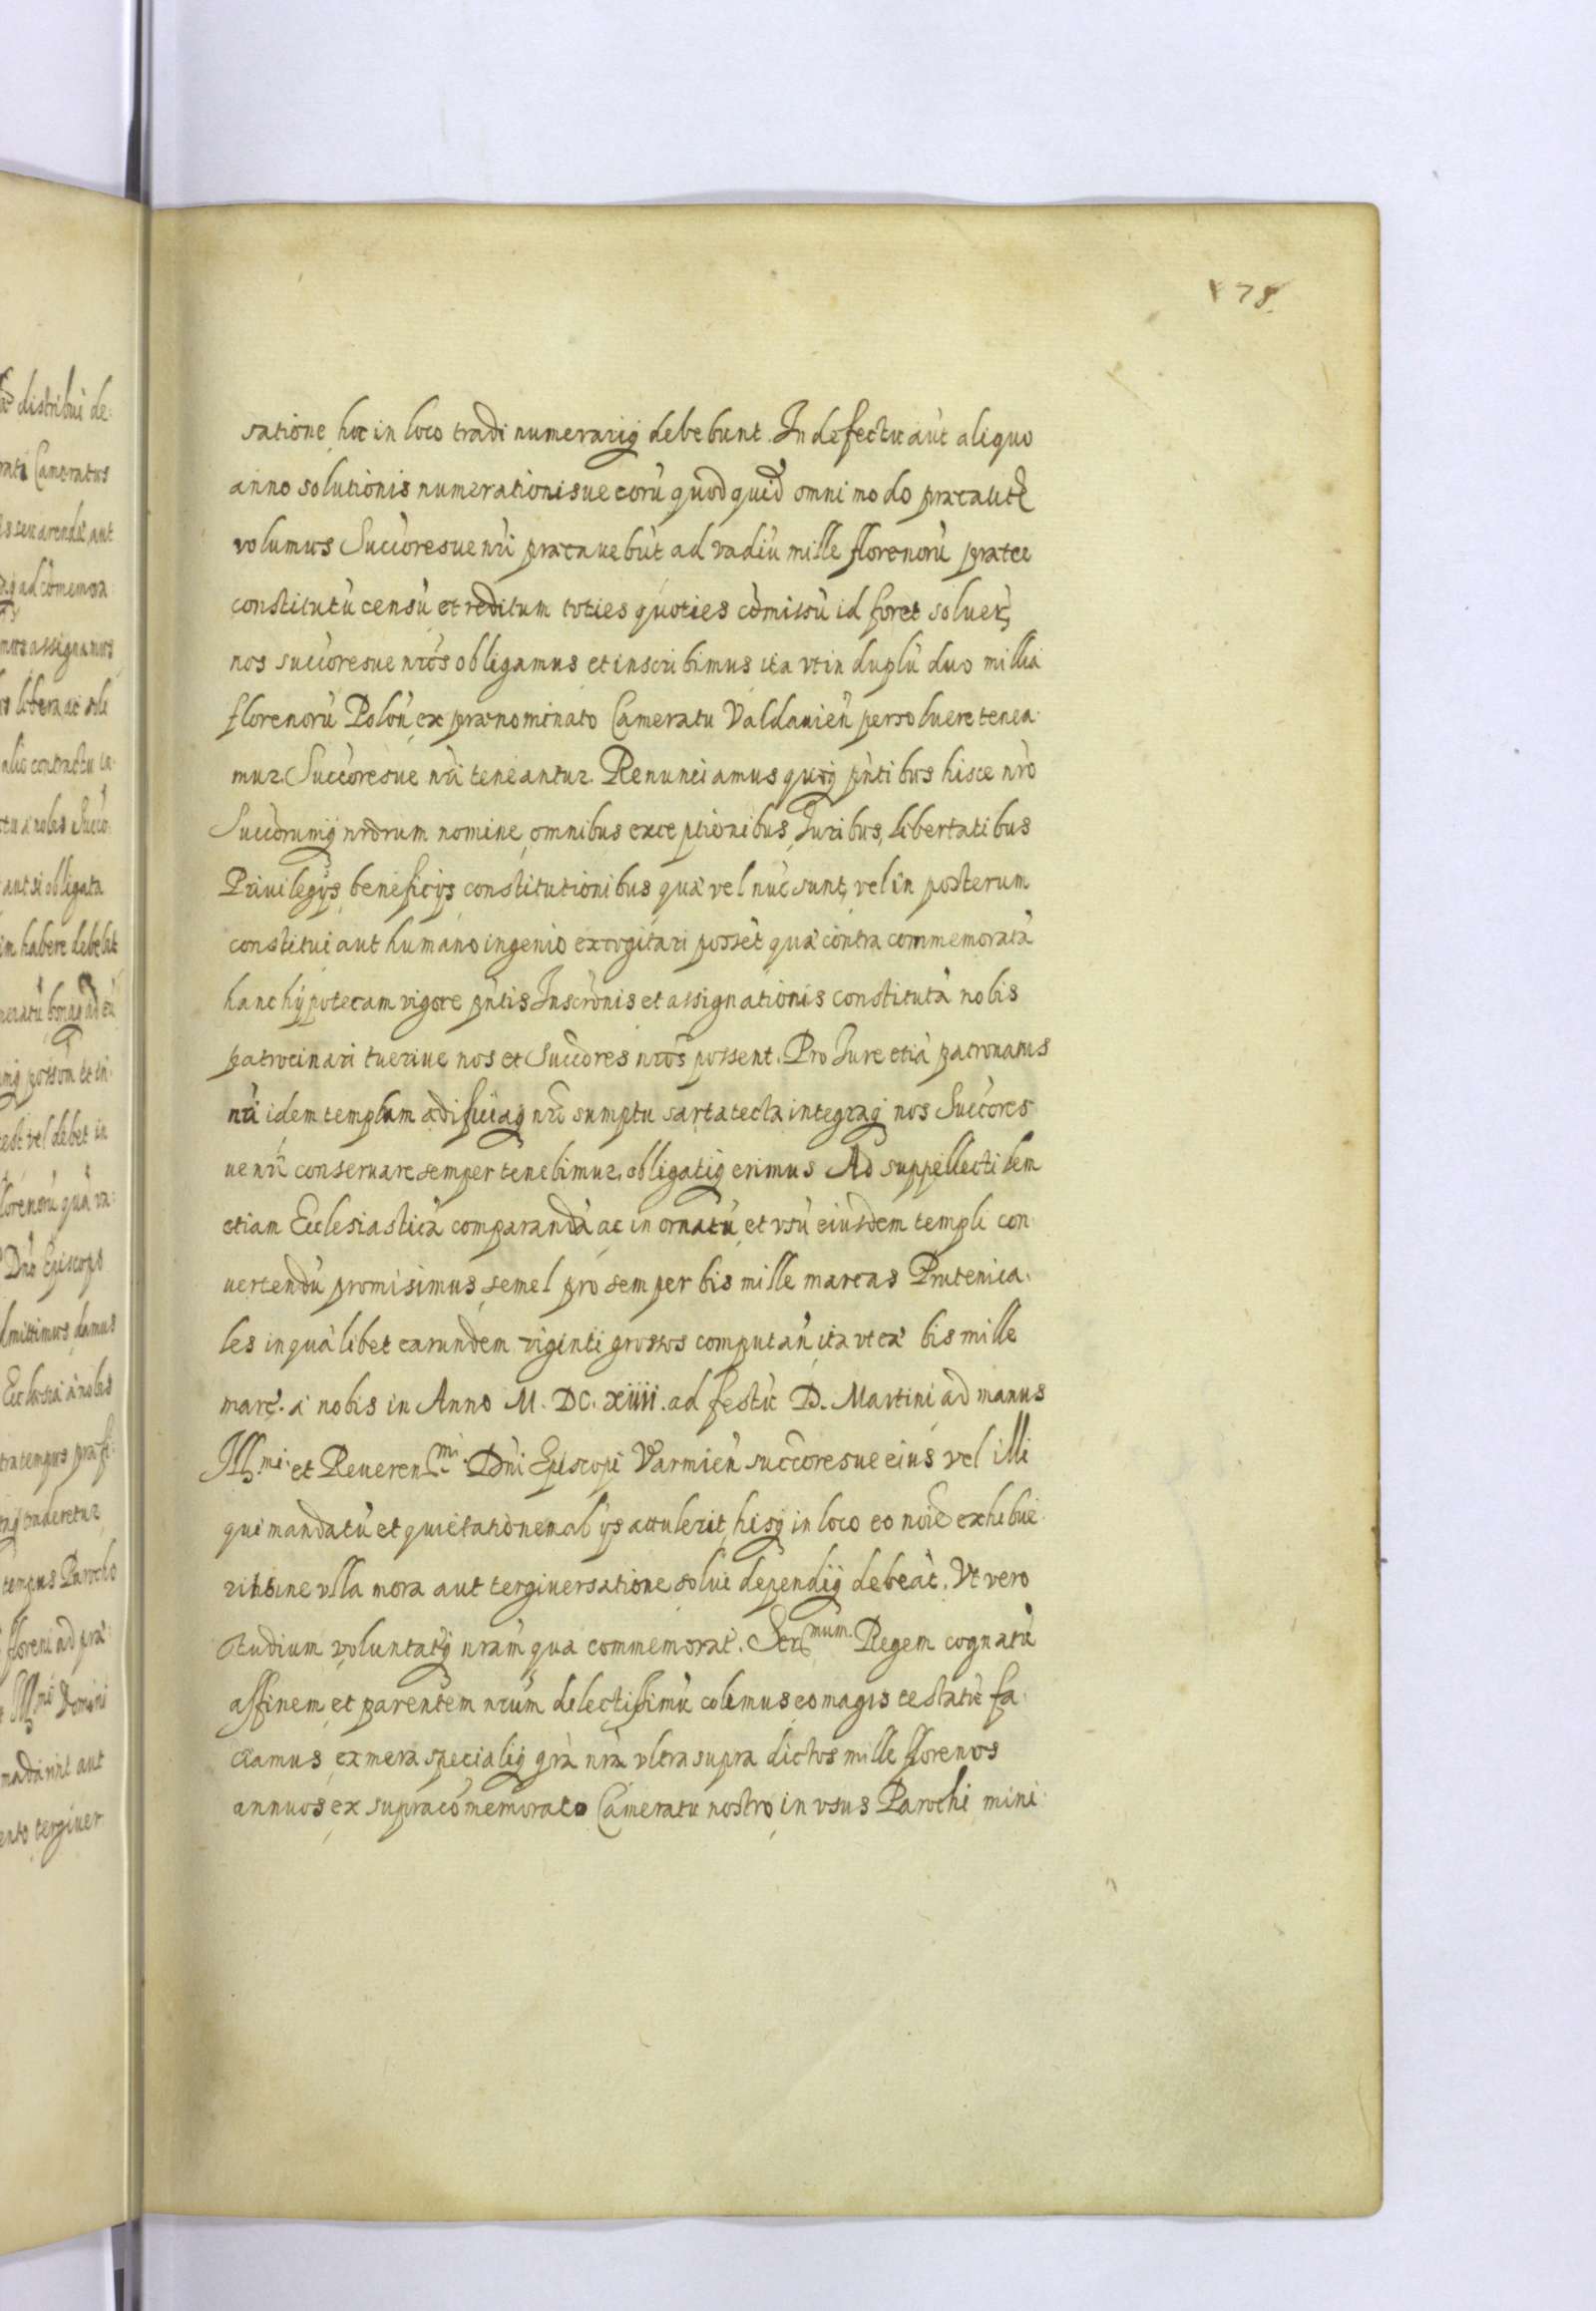 178.
satione, hoc in loco tradi numerariq debebunt. In defectu aūt aliquo
anno solutionis numerationisue eorū quod quid omnimodo præcautū
volumus Succoresue nr̄i præcauebūt ad vadiū mille florenorū præter
constitutū censū et reditum toties quoties cōmissū id foret soluen̄,
nos succoresue nrōs obligamus et inscribimus ita vt in duplū duo millia
florenorū Polon̄, ex prænominato Cameratu Valdauien̄ persoluere tenea-
mur. Succoresue nr̄i teneantur. Renunciamus quoq p̄ntibus hisce nr̄o
Succorumq nrōrum nomine, omnibus exceptionibus, Iuribus, libertatibus
Priuilegijs, beneficijs, constitutionibus quæ vel nūc sunt, vel in posterum
constitui aut humano ingenio excogitari possēt quæ contra commemoratā
hanc hÿpotecam vigore p̄ntis Inscrōnis et assignationis constitutā nobis
patrocinari tueriue nos et Succores nrōs possent. Pro Iure etiā patronatus
nr̄i idem templum ædificiaq nr̄o sumptu sarta tecta integraq nos Succores-
ue nr̄i conseruare semper tenebimur, obligatiq erimus Ad suppellectilem
etiam Ecclesiasticā comparandā ac in ornatū, et vsū eiusdem templi con-
uertendū promisimus, semel pro semper bis mille marcas Prutenica-
les in quālibet earundem viginti grossos computan̄, ita vt eæ bis mille
marc. a nobis in Anno M. DC. xiiii. ad festū D. Martini, ad manus
Ill.mi et Reueren.mi Dn̄i Episcopi Varmien̄ succoresue eius vel illi
qui mandatū et quietationem ab ijs attulerit, hisq in loco eo nōīe exhibue-
rit sine vlla mora aut tergiuersatione solui dependiq debeāt. Vt vero
studium voluntatēq nrām qua commemorat. Ser.mum Regem cognatū
affinem et parentem nrūm delectissimū colimus eo magis testatū fa-
ciamus, ex mera specialiq grā nrā vltra supra dictos mille florenos
annuos ex supracōmemorato Cameratu nostro, in vsus Parochi mini-